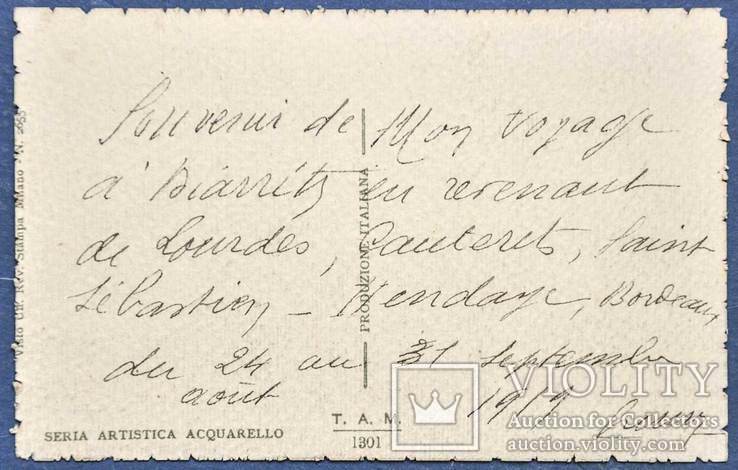 Souvenir de Mon Voyage
à Biarritz en revenant
de Lourdes, Cauterets, Saint
Sébastien - Hendaye, Bordeaux
du 24 au 31 Septembre
août 1919
PRODUZIONE ITALIANA
Visto Uff. Rev. Stampa Milano N. 2655
SERIA ARTISTICA ACQUARELLO
T. A. M.
1301
VIOLITY
Auction for Collectors
auction.violity.com